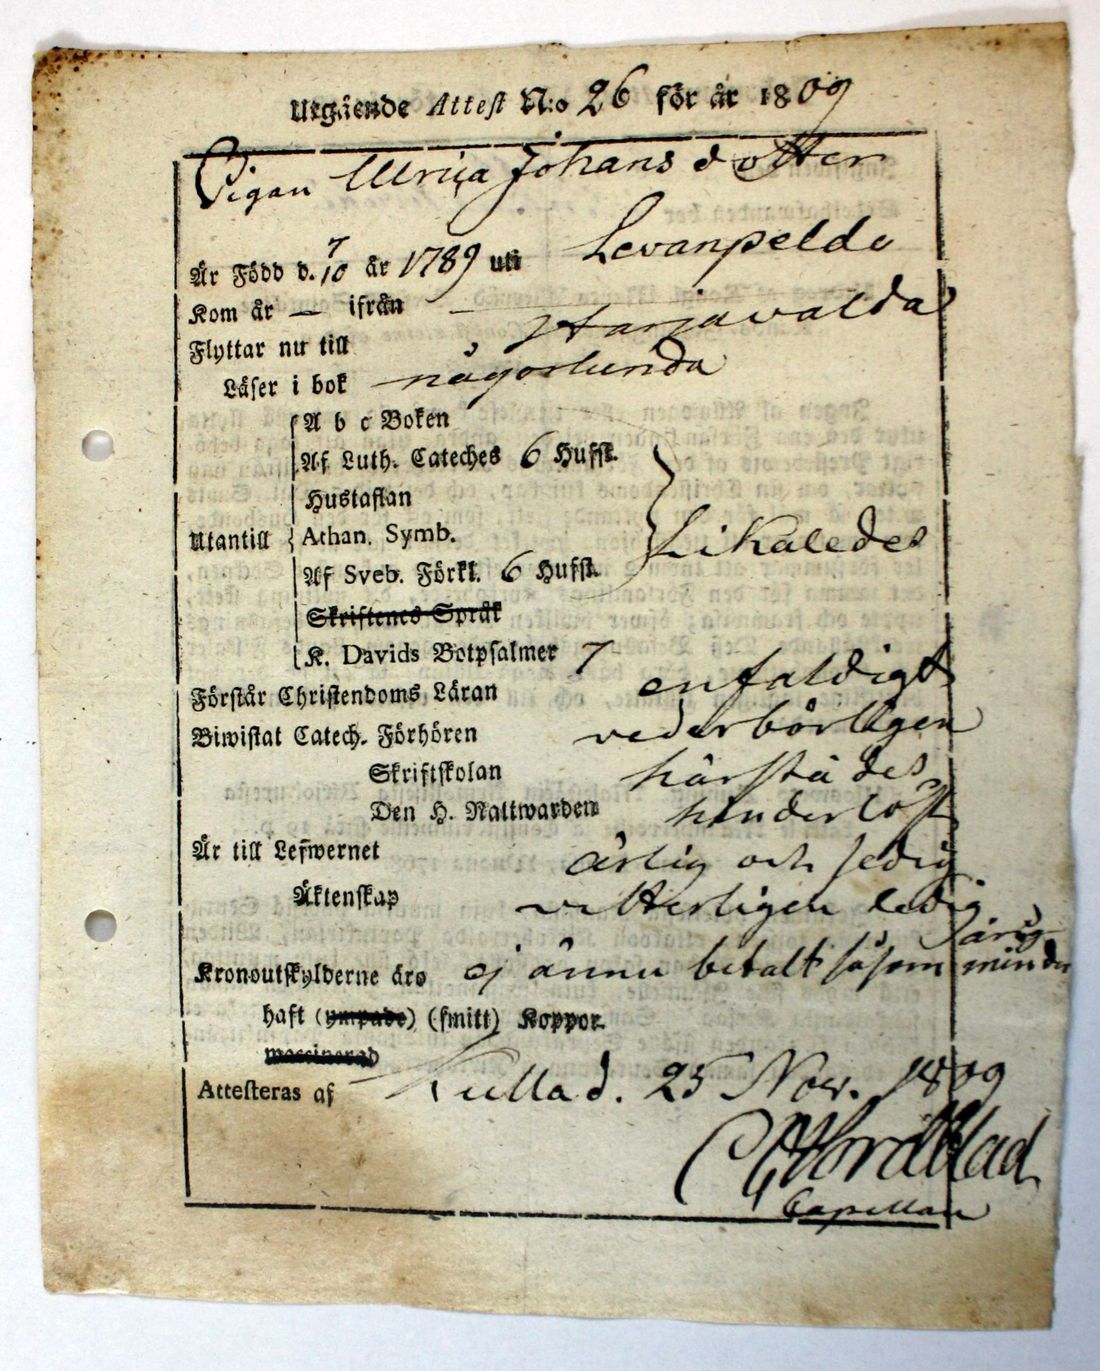 Utgående Attest N:o 26 för år 1809
Pigan Ulrica Johans dotter
Är Född d. 7/10 år 1789 uti Levanpeldo
Kom år — ifrån —
Flyttar nu till Harjavalda
Läser i bok någorlunda
A b c Boken
Af Luth. Cateches 6 Hufst.
Hustaflan
Utantill Athan. Symb. Likaledes
Af Sveb. Förkl. 6 Hufst.
Skriftenes Språk
K. Davids Botpsalmer 7
Förstår Christendoms Läran enfaldigt
Biwistat Catech. Förhören vederbörligen
Skriftskolan härstädes
Den H. Nattwarden hinderlöst
Är till Lefwernet ärlig och sedig
Äktenskap vitterligen ledig
Kronoutskylderne äro ej ännu betalt såsom minder
årig
haft (ympade) (smitt) Koppor.
vaccinerad
Attesteras af Kullad. 25 Nov. 1809
Nordblad
Capellan